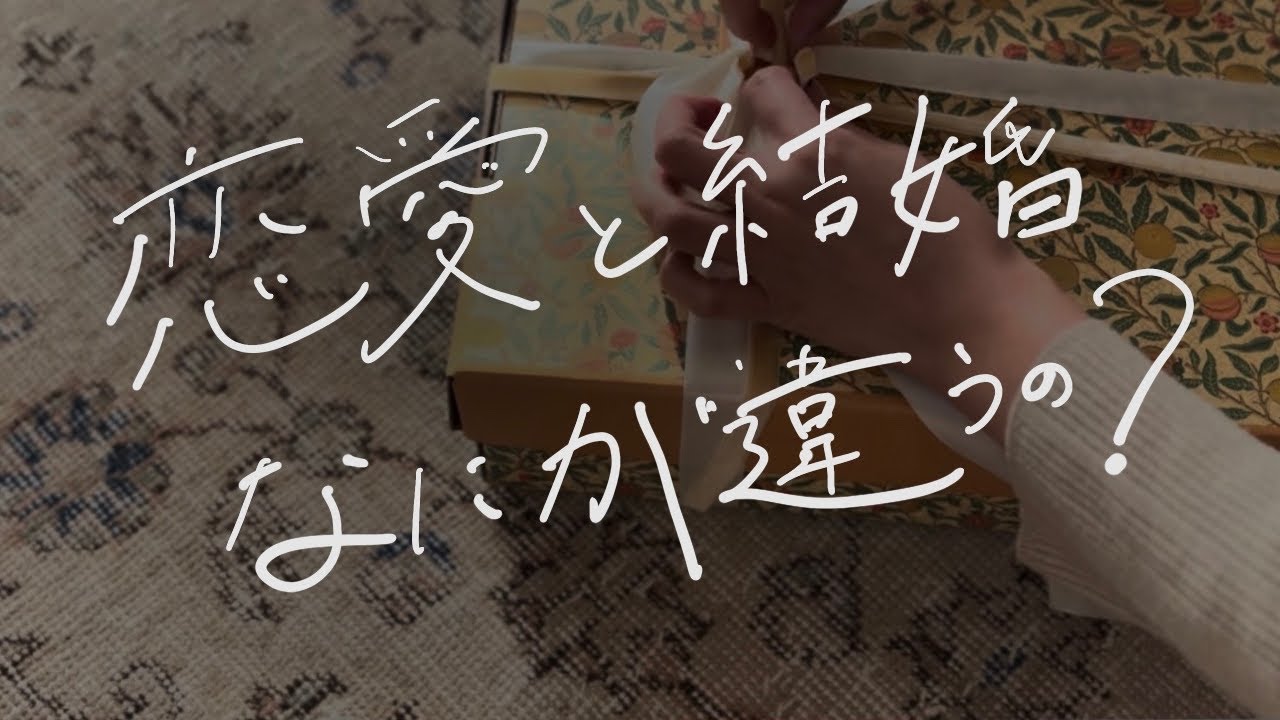 恋愛と結婚
なにが違うの?